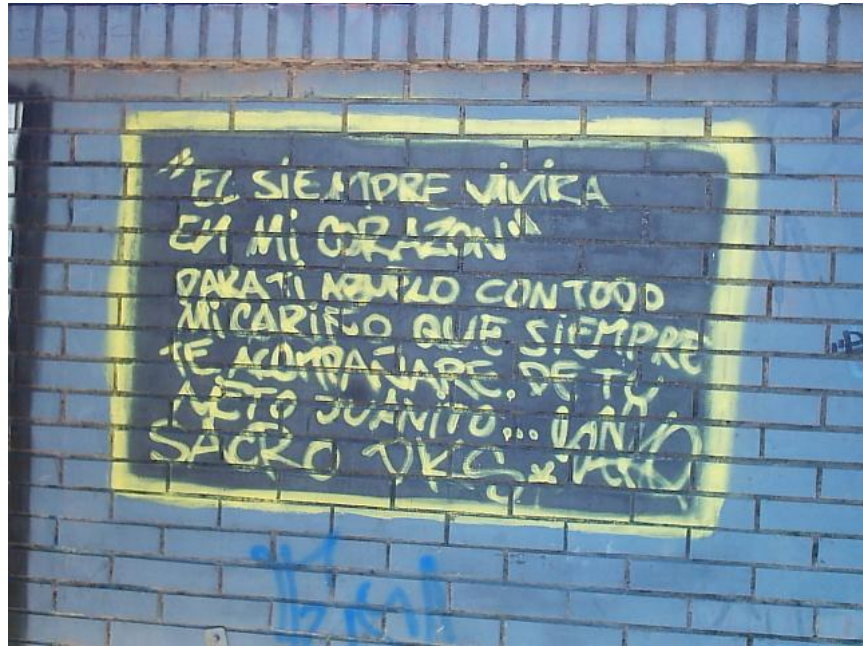 "EL SIEMPRE VIVIRA
EN MI CORAZON"
PARA TI ABUELO CON TODO
MI CARIÑO QUE SIEMPRE
TE ACOMPAÑARE. DE TU
NIETO JUANITO...
SACRO